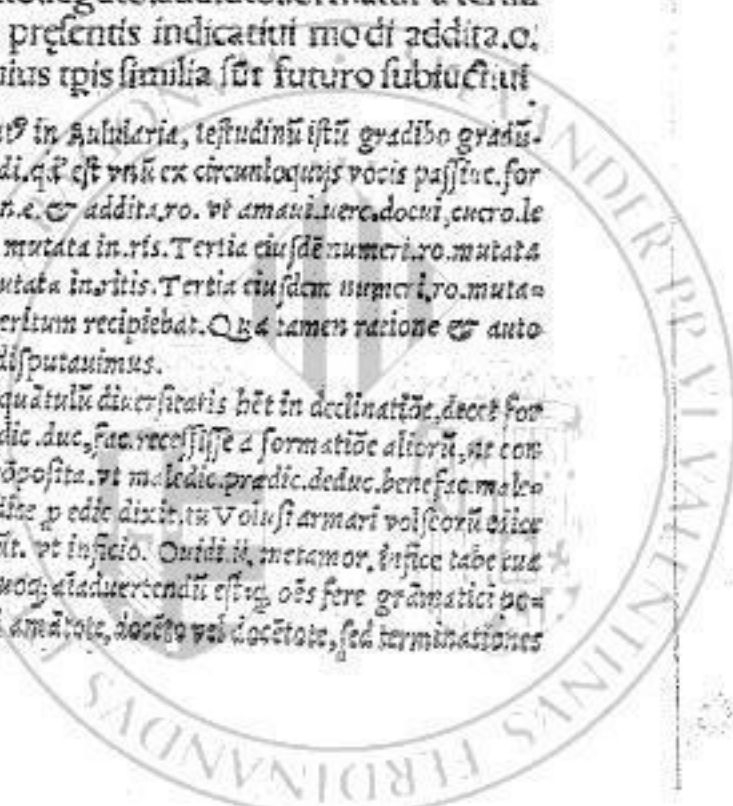 pręsentis indicatiui modi addita.o.
uius tp̃is similia sũt futuro subiũctiui
in Aulularia, testudinũ istũ gradibo gradũ-
di.q̃ est vnũ ex circunloquijs vocis passiue.for
n.e.& addita.ro. vt amaui.uero.docui,cuero.le
mutata in.ris.Tertia eiusdẽ numeri.ro.mutata
utata in.ritis.Tertia eiusdem numeri.ro.muta=
eritum recipiebat.Qua tamen ratione & auto
disputauimus.
quãtulũ diuersitatis hẽt in declinatiõe.decet for
dic.duc,fac.recessisse a formatiõe aliorũ,ut com
õposita.vt maledic.prædic.deduc.benefac.male=
edic dixit.tu Voluse armari volscorũ
ũt. vt inficio. Ouidi.ii, metamor. infice tabe tua
uoq; aĩaduertendũ est q oẽs fere grãmatici po=
amãtote, docẽto vel docẽtote, sed terminationes
ALEXANDER PP VI VALENTINVS FERDINANDVS